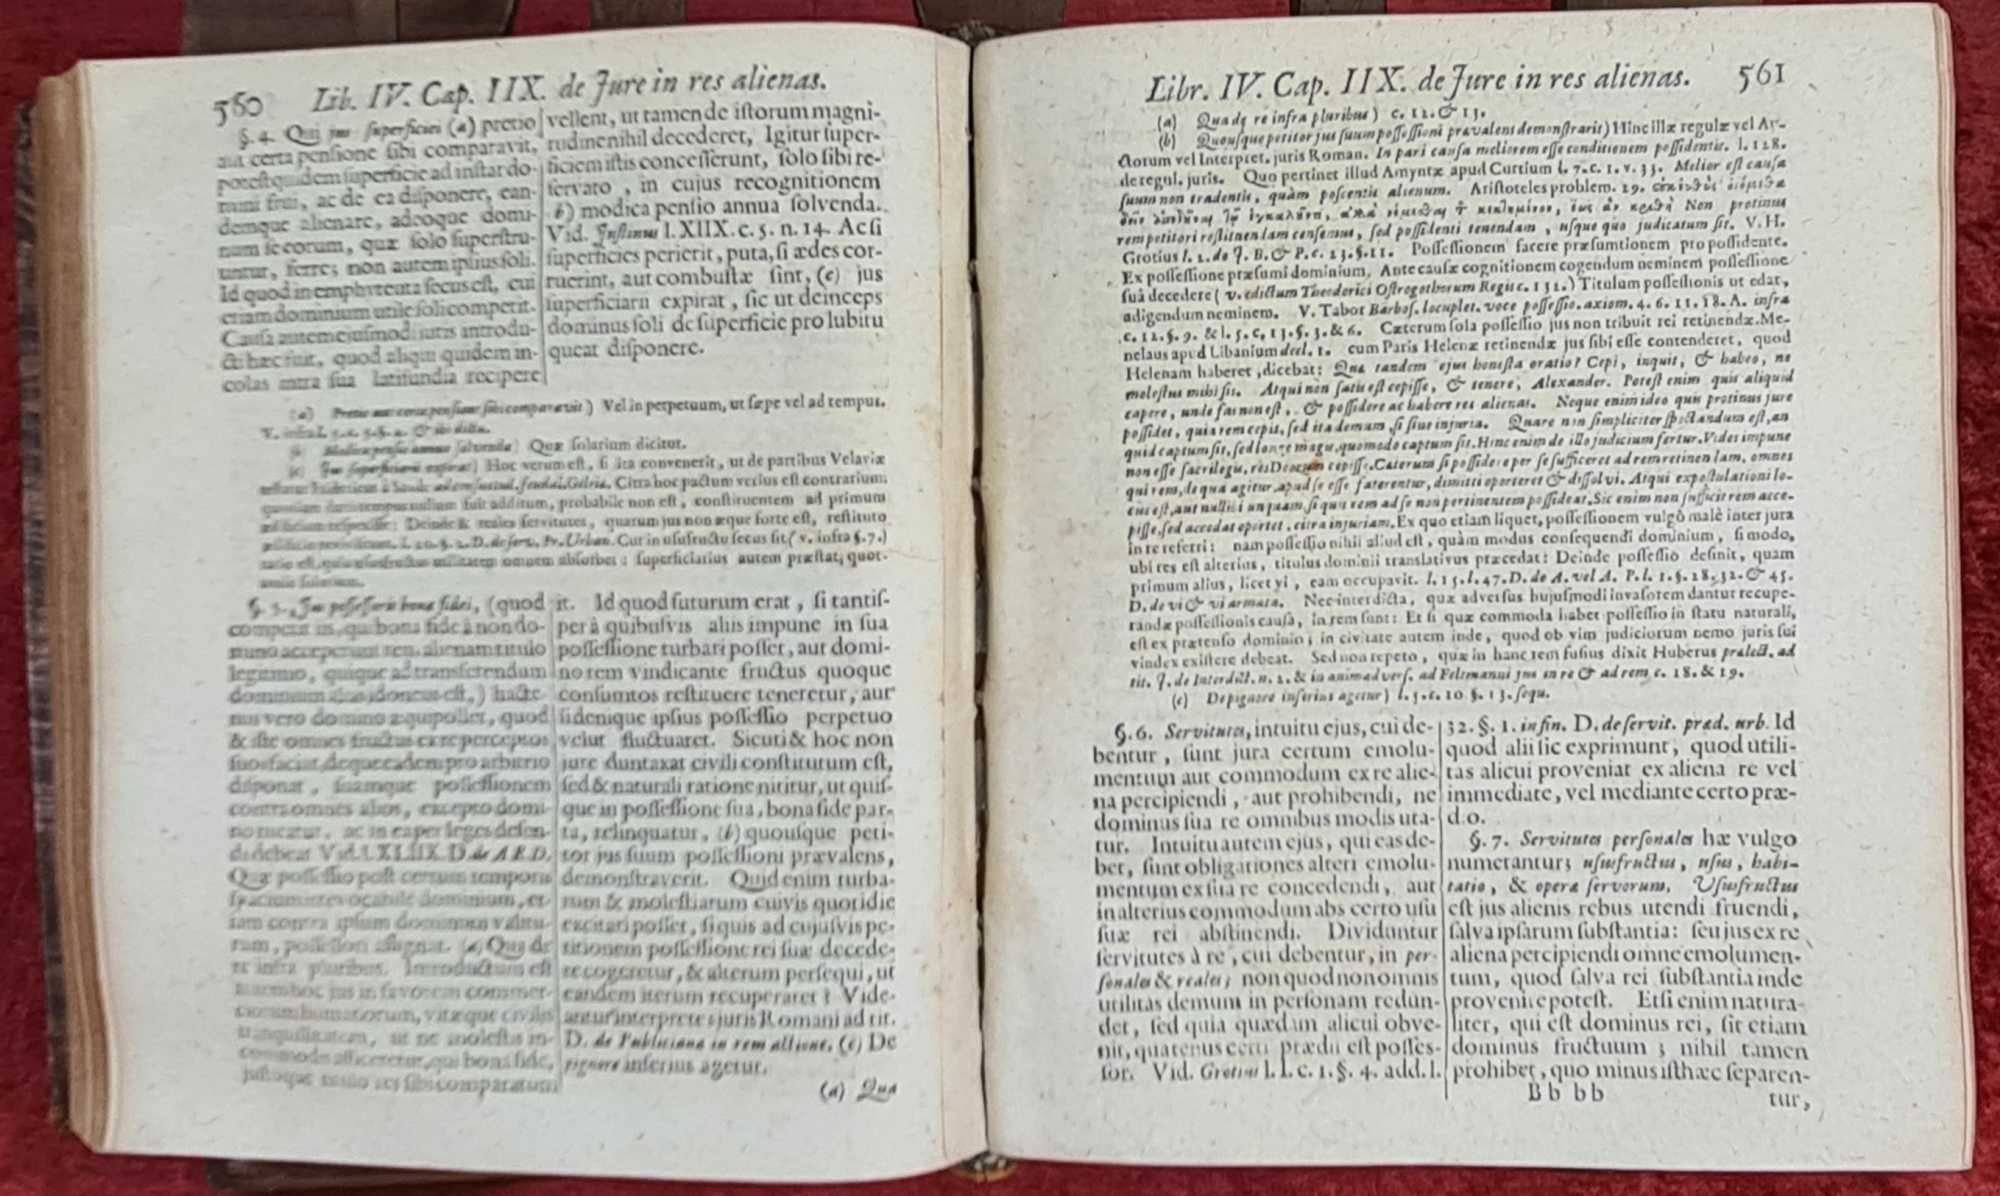 560 Lib. IV. Cap. IIX. de Jure in res alienas.
§. 4. Qui jus superficiei (a) pretio
aut certa pensione sibi comparavit,
potest quidem superficie ad instar do-
mini frui, ac de ea disponere, ean-
demque alienare, adeoque domi-
num se eorum, quæ solo superstru-
untur, ferre; non autem ipsius soli.
Id quod in emphyteuta secus est, cui
etiam dominium utile soli competit.
Causa autem ejusmodi juris introdu-
cti hæc fuit, quod aliqui quidem in-
colas intra sua latifundia recipere
vellent, ut tamen de istorum magni-
tudine nihil decederet, Igitur super-
ficiem istis concesserunt, solo sibi re-
servato, in cujus recognitionem
b) modica pensio annua solvenda.
Vid. Justinus l. XIIX. c. 5. n. 14. Ac si
superficies perierit, puta, si ædes cor-
ruerint, aut combustæ sint, (c) jus
superficiarii expirat, sic ut deinceps
dominus soli de superficie pro lubitu
queat disponere.
(a) Pretio aut certa pensione sibi comparavit) Vel in perpetuum, ut sæpe vel ad tempus.
V. infra l. 5. c.
Modica pensio annua solvenda) Quæ solarium dicitur.
(c) Jus superficiarii expirat) Hoc verum est, si ita convenerit, ut de partibus Velaviæ
feudal. Gelriæ. Citra hoc pactum verius est contrarium:
additum, probabile non est, constituentem ad primum
ædificium respexisse: Deinde & reales servitutes, quarum jus non æque forte est, restituto
ædificio l. 20. §. 2. D. de serv. Pr. Urban. Cur in usufructu secus sit (v. infra §. 7.)
ratio est, quia ususfructus utilitatem omnem absorbet: superficiarius autem præstat, quot-
annis solarium.
§. 5. Jus possessoris bonæ fidei, (quod
competit iis, qui bona fide à non do-
mino acceperunt rem alienam titulo
legitimo, quique ad transferendum
dominium alias idoneus est,) hacte-
nus vero domino æquipollet, quod
& iste omnes fructus ex re perceptos
suos faciat, deque eadem pro arbitrio
disponat, suamque possessionem
contra omnes alios, excepto domi-
no tueatur, ac in ea per leges defen-
di debeat Vid. l. XLIIX. D. de A. R. D.
Quæ possessio post certum temporis
spacium irrevocabile dominium, et-
iam contra ipsum dominum valitu-
rum, possessori assignat. (a) Qua de
re infra pluribus. Introductum est
autem hoc jus in favorem commer-
ciorum humanorum, vitæque civilis
tranquillitatem, ut ne molestia in-
commodo afficeretur, qui bona fide,
justoque titulo res sibi comparatum
it. Id quod futurum erat, si tantis-
per à quibusvis aliis impune in sua
possessione turbari posset, aut domi-
no rem vindicante fructus quoque
consumtos restituere teneretur, aut
si denique ipsius possessio perpetuo
velut fluctuaret. Sicuti & hoc non
jure duntaxat civili constitutum est,
sed & naturali ratione nititur, ut quis-
que in possessione sua, bona fide par-
ta, relinquatur, (b) quousque peti-
tor jus suum possessioni prævalens,
demonstraverit. Quid enim turba-
rum & molestiarum cuivis quotidie
excitari posset, si quis ad cujusvis pe-
titionem possessione rei suæ decede-
re cogeretur, & alterum persequi, ut
eandem iterum recuperaret? Vide-
antur interpretes juris Romani ad tit.
D. de Publiciana in rem actione. (c) De
pignore inferius agetur.
(a) Qua
Libr. IV. Cap. IIX. de Jure in res alienas. 561
(a) Qua de re infra pluribus) c. 12. & 13.
(b) Quousque petitor jus suum possessioni prævalens demonstrarit) Hinc illæ regulæ vel Au-
ctorum vel Interpret. juris Roman. In pari causa meliorem esse conditionem possidentis. l. 128.
de regul. juris. Quo pertinet illud Amyntæ apud Curtium l. 7. c. 1. v. 33. Melior est causa
suum non tradentis, quàm poscentis alienum. Aristoteles problem. 29.
Non protinus
rem petitori restituendam censemus, sed possidenti tenendam, usque quo judicatum sit. V. H.
Grotius l. 2. de J. B. & P. c. 23. §. 11. Possessionem facere præsumtionem pro possidente.
Ex possessione præsumi dominium. Ante causæ cognitionem cogendum neminem possessione
suâ decedere (v. edictum Theodorici Ostrogothorum Regis c. 132.) Titulum possessionis ut edat,
adigendum neminem. V. Tabor Barbos. locuplet. voce possessio. axiom. 4. 6. 11. 18. A. infra
c. 12. §. 9. & l. 5. c. 13. §. 3. & 6. Cæterum sola possessio jus non tribuit rei retinendæ. Me-
nelaus apud Libanium decl. 1. cum Paris Helenæ retinendæ jus sibi esse contenderet, quod
Helenam haberet, dicebat: Quæ tandem ejus honesta oratio? Cepi, inquit, & habeo, ne
molestus mihi sis. Atqui non satis est cepisse, & tenere, Alexander. Potest enim quis aliquid
capere, unde fas non est, & possidere ac habere res alienas. Neque enim ideo quis protinus jure
possidet, quia rem cepit, sed ita demum, si sine injuria. Quare non simpliciter spectandum est, an
quid captum sit, sed longe magis, quomodo captum sit. Hinc enim de illo judicium fertur. Vides impune
non esse sacrilegis, res Deorum cepisse. Cæterum si possidere per se sufficeret ad rem retinendam, omnes
qui rem, de qua agitur, apud se esse faterentur, dimitti oporteret & dissolvi. Atqui expostulationi lo-
cus est, aut nullibi unquam, si quis rem ad se non pertinentem possideat. Sic enim non sufficit rem acce-
pisse, sed accedat oportet, citra injuriam. Ex quo etiam liquet, possessionem vulgò malè inter jura
in re referri: nam possessio nihil aliud est, quàm modus consequendi dominium, si modo,
ubi res est alterius, titulus dominii translativus præcedat: Deinde possessio desinit, quam
primum alius, licet vi, eam occupavit. l. 15. l. 47. D. de A. vel A. P. l. 1. §. 28. 32. & 45.
D. de vi & vi armata. Nec interdicta, quæ adversus hujusmodi invasorem dantur recupe-
randæ possessionis causâ, in rem sunt: Et si quæ commoda habet possessio in statu naturali,
est ex prætenso dominio; in civitate autem inde, quod ob vim judiciorum nemo juris sui
vindex existere debeat. Sed non repeto, quæ in hanc rem fusius dixit Huberus prælect. ad
tit. J. de Interdict. n. 2. & in animadvers. ad Feltmanni jus in re & ad rem c. 18. & 19.
(c) De pignore inferius agetur) l. 5. c. 10 §. 13. sequ.
§. 6. Servitutes, intuitu ejus, cui de-
bentur, sunt jura certum emolu-
mentum aut commodum ex re alie-
na percipiendi, aut prohibendi, ne
dominus sua re omnibus modis uta-
tur. Intuitu autem ejus, qui eas de-
bet, sunt obligationes alteri emolu-
mentum ex sua re concedendi, aut
in alterius commodum abs certo usu
suæ rei abstinendi. Dividuntur
servitutes à re, cui debentur, in per-
sonales & reales; non quod non omnis
utilitas demum in personam redun-
det, sed quia quædam alicui obve-
nit, quatenus certi prædii est posses-
sor. Vid. Grotius l. 1. c. 1. §. 4. add. l.
32. §. 1. in fin. D. de servit. præd. urb. Id
quod alii sic exprimunt, quod utili-
tas alicui proveniat ex aliena re vel
immediate, vel mediante certo præ-
d.o.
§. 7. Servitutes personales hæ vulgo
numerantur; ususfructus, usus, habi-
tatio, & operæ servorum. Ususfructus
est jus alienis rebus utendi fruendi,
salva ipsarum substantia: seu jus ex re
aliena percipiendi omne emolumen-
tum, quod salva rei substantia inde
provenire potest. Etsi enim natura-
liter, qui est dominus rei, sit etiam
dominus fructuum; nihil tamen
prohibet, quo minus isthæc separen-
Bb bb
tur,